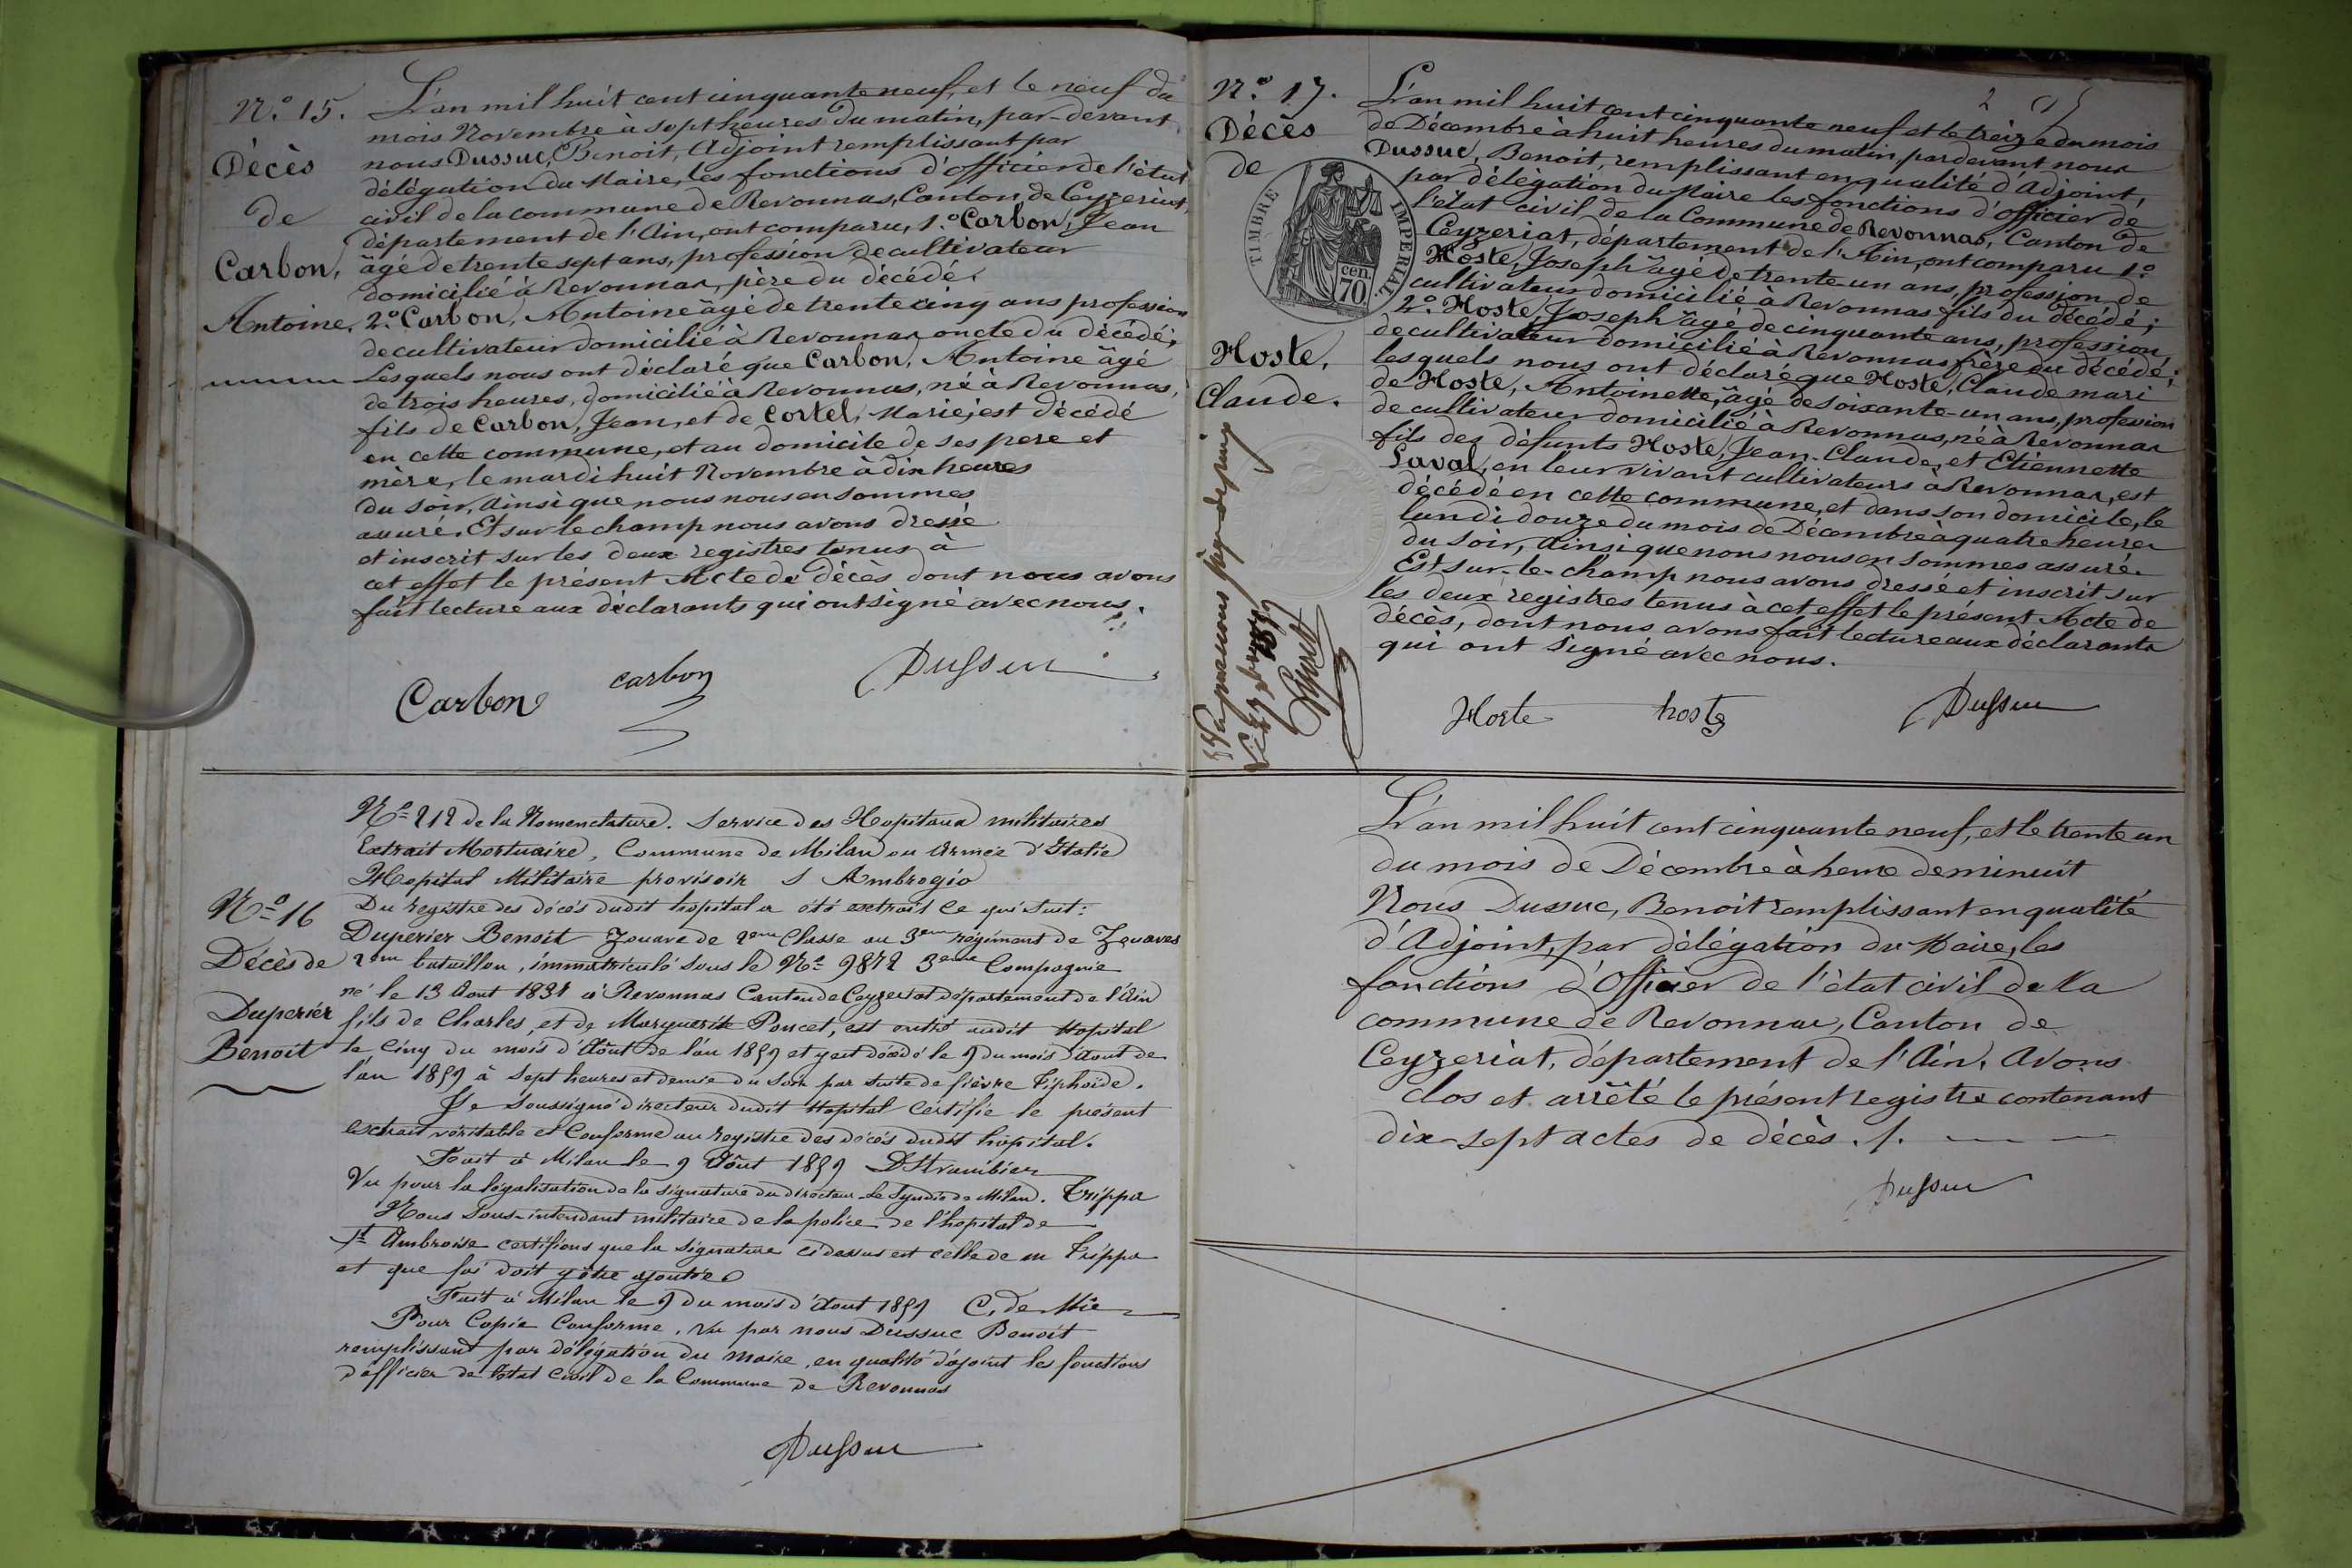 N.° 15.
Décès
de
Carbon,
Antoine.
L'an mil huit cent cinquante neuf, et le neuf du
mois Novembre à sept heures du matin, par-devant
nous Dussuc, Benoit, Adjoint remplissant par
délégation du Maire, les fonctions d'officier de l'état
civil de la commune de Revonnas, Canton de Ceyzeriat,
département de l'Ain, ont comparu, 1.° Carbon, Jean
âgé de trente sept ans, profession de cultivateur
domicilié à Revonnas, père du décédé.
2.° Carbon, Antoine âgé de trente cinq ans profession
de cultivateur domicilié à Revonnas oncle du décédé;
Lesquels nous ont déclaré que Carbon, Antoine âgé
de trois heures, domicilié à Revonnas, né à Revonnas,
fils de Carbon, Jean, et de Cortel, Marie, est décédé
en cette commune, et au domicile de ses pere et
mère, le mardi huit Novembre à dix heures
du soir, ainsi que nous nous en sommes
assuré. Et sur le champ nous avons dressé
et inscrit sur les deux registres tenus à
cet effet le présent Acte de décès dont nous avons
fait lecture aux déclarants qui ont signé avec nous.
Carbon carbon Dussuc
N° 16
Décès de
Duperier
Benoit
N° 212 de la Nomenclature. Service des Hopitaux militaires
Extrait Mortuaire, Commune de Milan ou Armée d'Italie
Hopital Militaire provisoir S Ambrogio
Du registre des décés dudit hopital a été extrait ce qui suit:
Duperier Benoit Zouave de 2eme Classe au 3eme régiment de Zouaves
2eme bataillon, immatriculé sous le N° 9872 3eme Compagnie
né le 13 Aout 1831 à Revonnas Canton de Ceyzeriat département de l'Ain
fils de Charles, et de Marguerite Poncet, est entré audit Hopital
le cinq du mois d'Aôut de l'an 1859 et y est décédé le 9 du mois d'Aout de
l'an 1859 à sept heures et demie du soir par suite de fièvre tiphoïde.
Je Soussigné directeur dudit Hopital certifie le présent
extrait véritable et Conforme au registre des décés dudit hopital.
Fait à Milan le 9 Aôut 1859
Vu pour la légalisation de la signature du directeur Le Syndic de Milan. Trippa
Nous Sous-intendant militaire de la police de l'hopital de
St Ambroise certifions que la signature ci dessus est celle de m Trippa
et que foi doit y être ajoutée
Fait à Milan le 9 du mois d'Aout 1859
Pour Copie Conforme, Vu par nous Dussuc Benoit
remplissant par délégation du Maire, en qualité d'ajoint les fonctions
d'officier de l'état civil de la Commune de Revonnas
Dussuc
N.° 17.
Décès
de
TIMBRE IMPERIAL.
70 cen.
Hoste,
Claude.
L'an mil huit cent cinquante neuf et le treize du mois
de Décembre à huit heures du matin, pardevant nous
Dussuc, Benoit, remplissant en qualité d'Adjoint,
par délégation du Maire les fonctions d'officier de
l'état civil de la Commune de Revonnas, Canton de
Ceyzeriat, département de l'Ain, ont comparu 1.°
Hoste, Joseph âgé de trente-un ans, profession de
cultivateur domicilié à Revonnas fils du décédé;
2.° Hoste, Joseph âgé de cinquante ans, profession
de cultivateur domicilié à Revonnas frère du décédé;
lesquels nous ont déclaré que Hoste, Claude mari
de Hoste, Antoinette, âgé de soixante-un ans, profession
de cultivateur domicilié à Revonnas, né à Revonnas
fils des défunts Hoste, Jean-Claude, et Etiennette
Laval, en leur vivant cultivateurs à Revonnas, est
décédé en cette commune, et dans son domicile, le
lundi douze du mois de Décembre à quatre heures
du soir, ainsi que nous nous en sommes assuré.
Est sur-le-champ nous avons dressé et inscrit sur
les deux registres tenus à cet effet le présent Acte de
décès, dont nous avons fait lecture aux déclarants
qui ont signé avec nous.
Hoste hoste Dussuc
L'an mil huit cent cinquante neuf, et le trente un
du mois de Décembre à heure de minuit
Nous Dussuc, Benoit remplissant en qualité
d'Adjoint, par délégation du Maire, les
fonctions d'Officier de l'état civil de la
commune de Revonnas, Canton de
Ceyzeriat, département de l'Ain. Avons
clos et arrêté le présent registre contenant
dix-sept actes de décès.
Dussuc